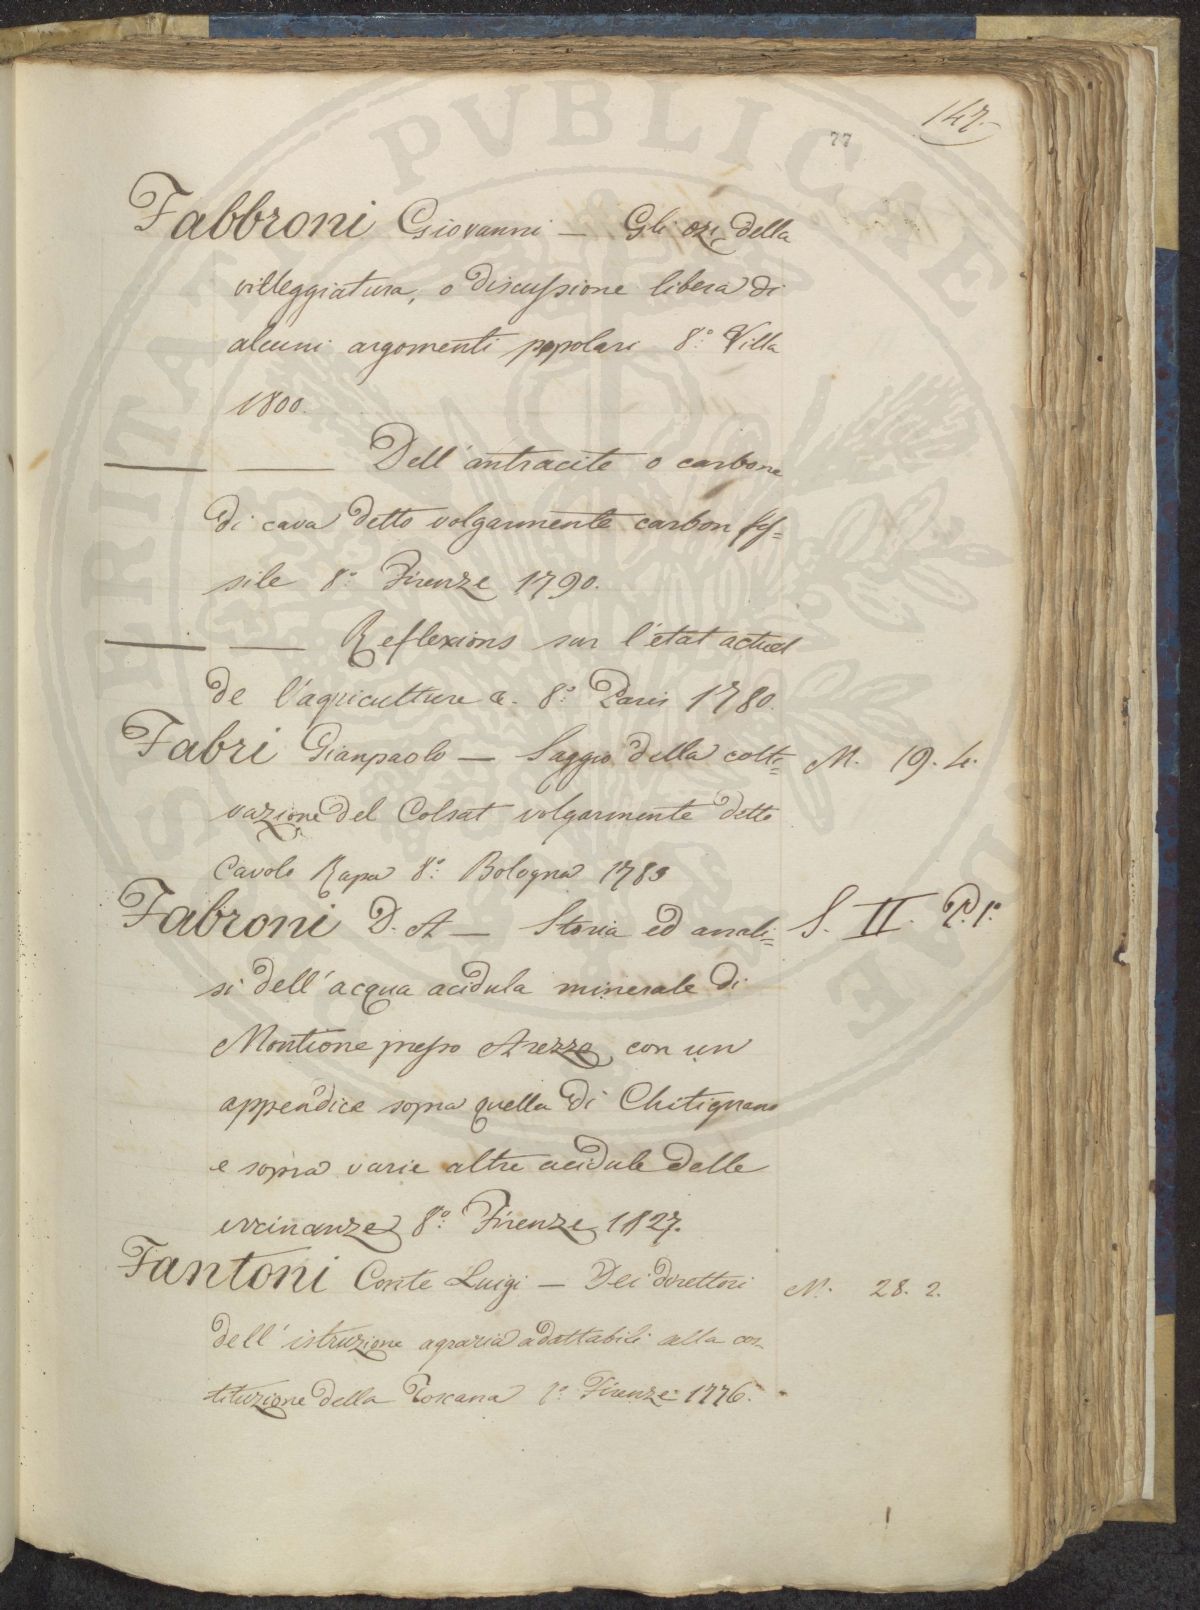 147.
77
Fabbroni Giovanni — Gli ozi della
villeggiatura, o discussione libera di
alcuni argomenti popolari 8.° Villa
1800.
—— —— Dell'antracite o carbone
di cava detto volgarmente carbon fos=
sile 8.° Firenze 1790.
—— —— Reflexions sur l'état actuel
de l'agriculture &. 8.° Paris 1780.
Fabri Gianpaolo — Saggio della colti= M. 19. 4.
vazione del Colsat volgarmente detto
Cavolo Rapa 8.° Bologna 1783
Fabroni D. A — Storia ed anali= S. II. P. 1.ª
si dell'acqua acidula minerale di
Montione presso Arezzo, con un
appendice sopra quella di Chitignano
e sopra varie altre acidule delle
vicinanze 8.° Firenze 1827.
Fantoni Conte Luigi — Dei direttori M. 28. 2.
dell'istruzione agraria adattabili alla cos=
tituzione della Toscana 8.° Firenze 1776.
PVBLICAE
PROSPERITATIS